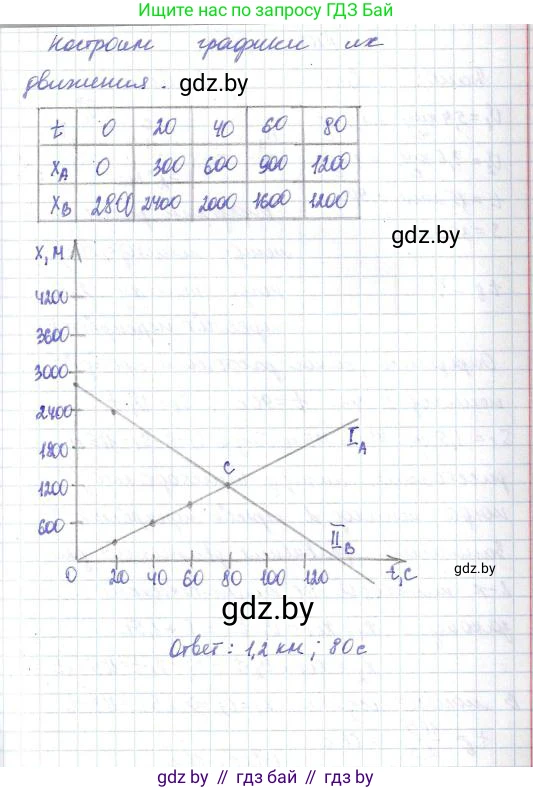 Ищите по запросу ГДЗ Бай
Построим графики их
движения.
gdz.by
t 0 20 40 60 80
xA 0 300 600 900 1200
xB 2800 2400 2000 1600 1200
gdz.by
x, м
4200
3600
3000
2400
1800
1200
600
C
I A
II B
gdz.by
0 20 40 60 80 100 120 t, с
gdz.by
Ответ: 1,2 км; 80 с
gdz.by // гдз бай // gdz.by